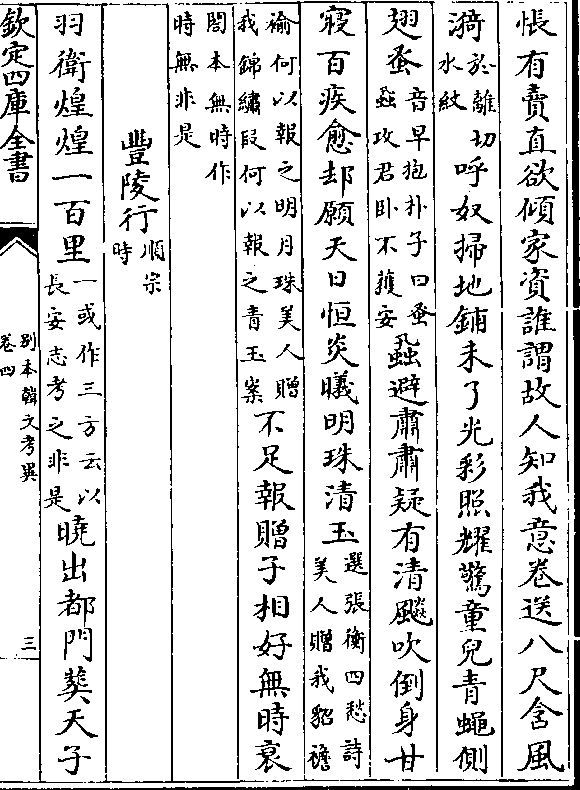 悵有賣直欲傾家資誰謂故人知我意卷送八尺含風
漪於離切水紋呼奴掃地鋪未了光彩照耀驚童兒青蠅側
翅蚤音早抱朴子曰蚤蝨攻君卧不獲安蝨避肅肅疑有清飈吹倒身甘
寢百疾愈却願天日恒炎曦明珠清玉選張衡四愁詩美人贈我貂襜
褕何以報之明月珠美人贈我錦繡段何以報之青玉案不足報贈子相好無時衰
閣本無時作時無非是
豐陵行順宗時
羽衛煌煌一百里一或作三方云以長安志考之非是曉出都門葬天子
欽定四庫全書
别本韓文考異
卷四
三